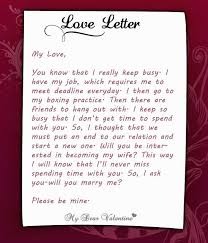 Love Letter
My Love,
You know that I really keep busy. I
have my job, which requires me to
meet deadline everyday. I then go to
my boxing practice. Then there are
friends to hang out with. I keep so
busy that I don't get time to spend
with you. So, I thought that we
must put an end to our relation and
start a new one. Will you be inter-
ested in becoming my wife? This way
I will know that I'll never miss
spending time with you. So, I
ask-will you marry me?
Please be mine.
My Dear Valentine